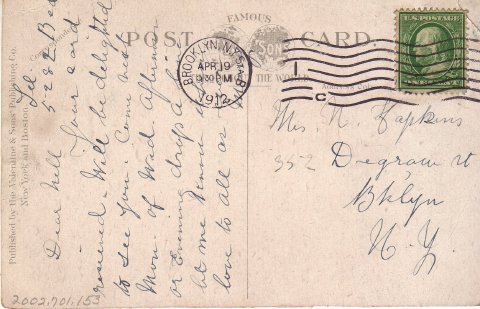 POST CARD.
FAMOUS
SONS
THE WORLD
BROOKLYN, N.Y.
APR 19
9 30 PM
1912
U.S. POSTAGE
1
C
Published by the Valentine & Sons' Publishing Co.
New York and Boston
Tel.
5282 Bed
Dear Nell
Your card
received. Will be delighted
to see you. Come next
Mon. or Wed. Afternoon
or Evening drop a line
let me know
love to all as
Mrs. N. Hopkins
352 Degraw st
Bklyn
N.Y.
2002.701.153